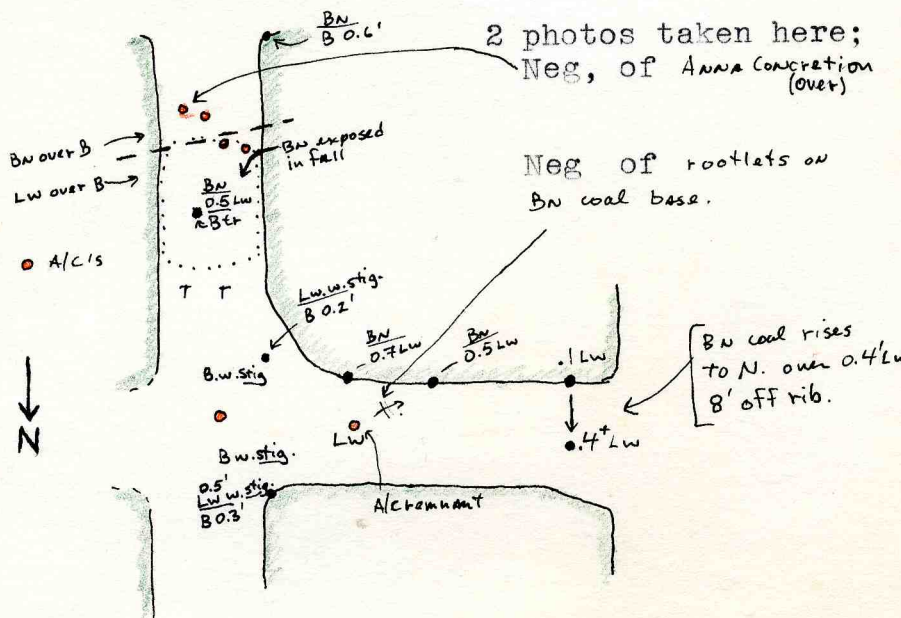 BN
B 0.6'
2 photos taken here;
Neg, of ANNA Concretion
(over)
BN over B
LW over B
BN exposed
in fall
BN
0.5 LW
B tr
A/C's
T T
N
Neg of rootlets on
BN coal base.
Lw.w.stig.
B 0.2'
BN
0.7 LW
BN
0.5 LW
.1 LW
BN coal rises
to N. over 0.4' LW
8' off rib.
B.w.stig
LW
.4+ LW
B w.stig.
0.5'
LW w.stig.
B 0.3'
A/C remnant